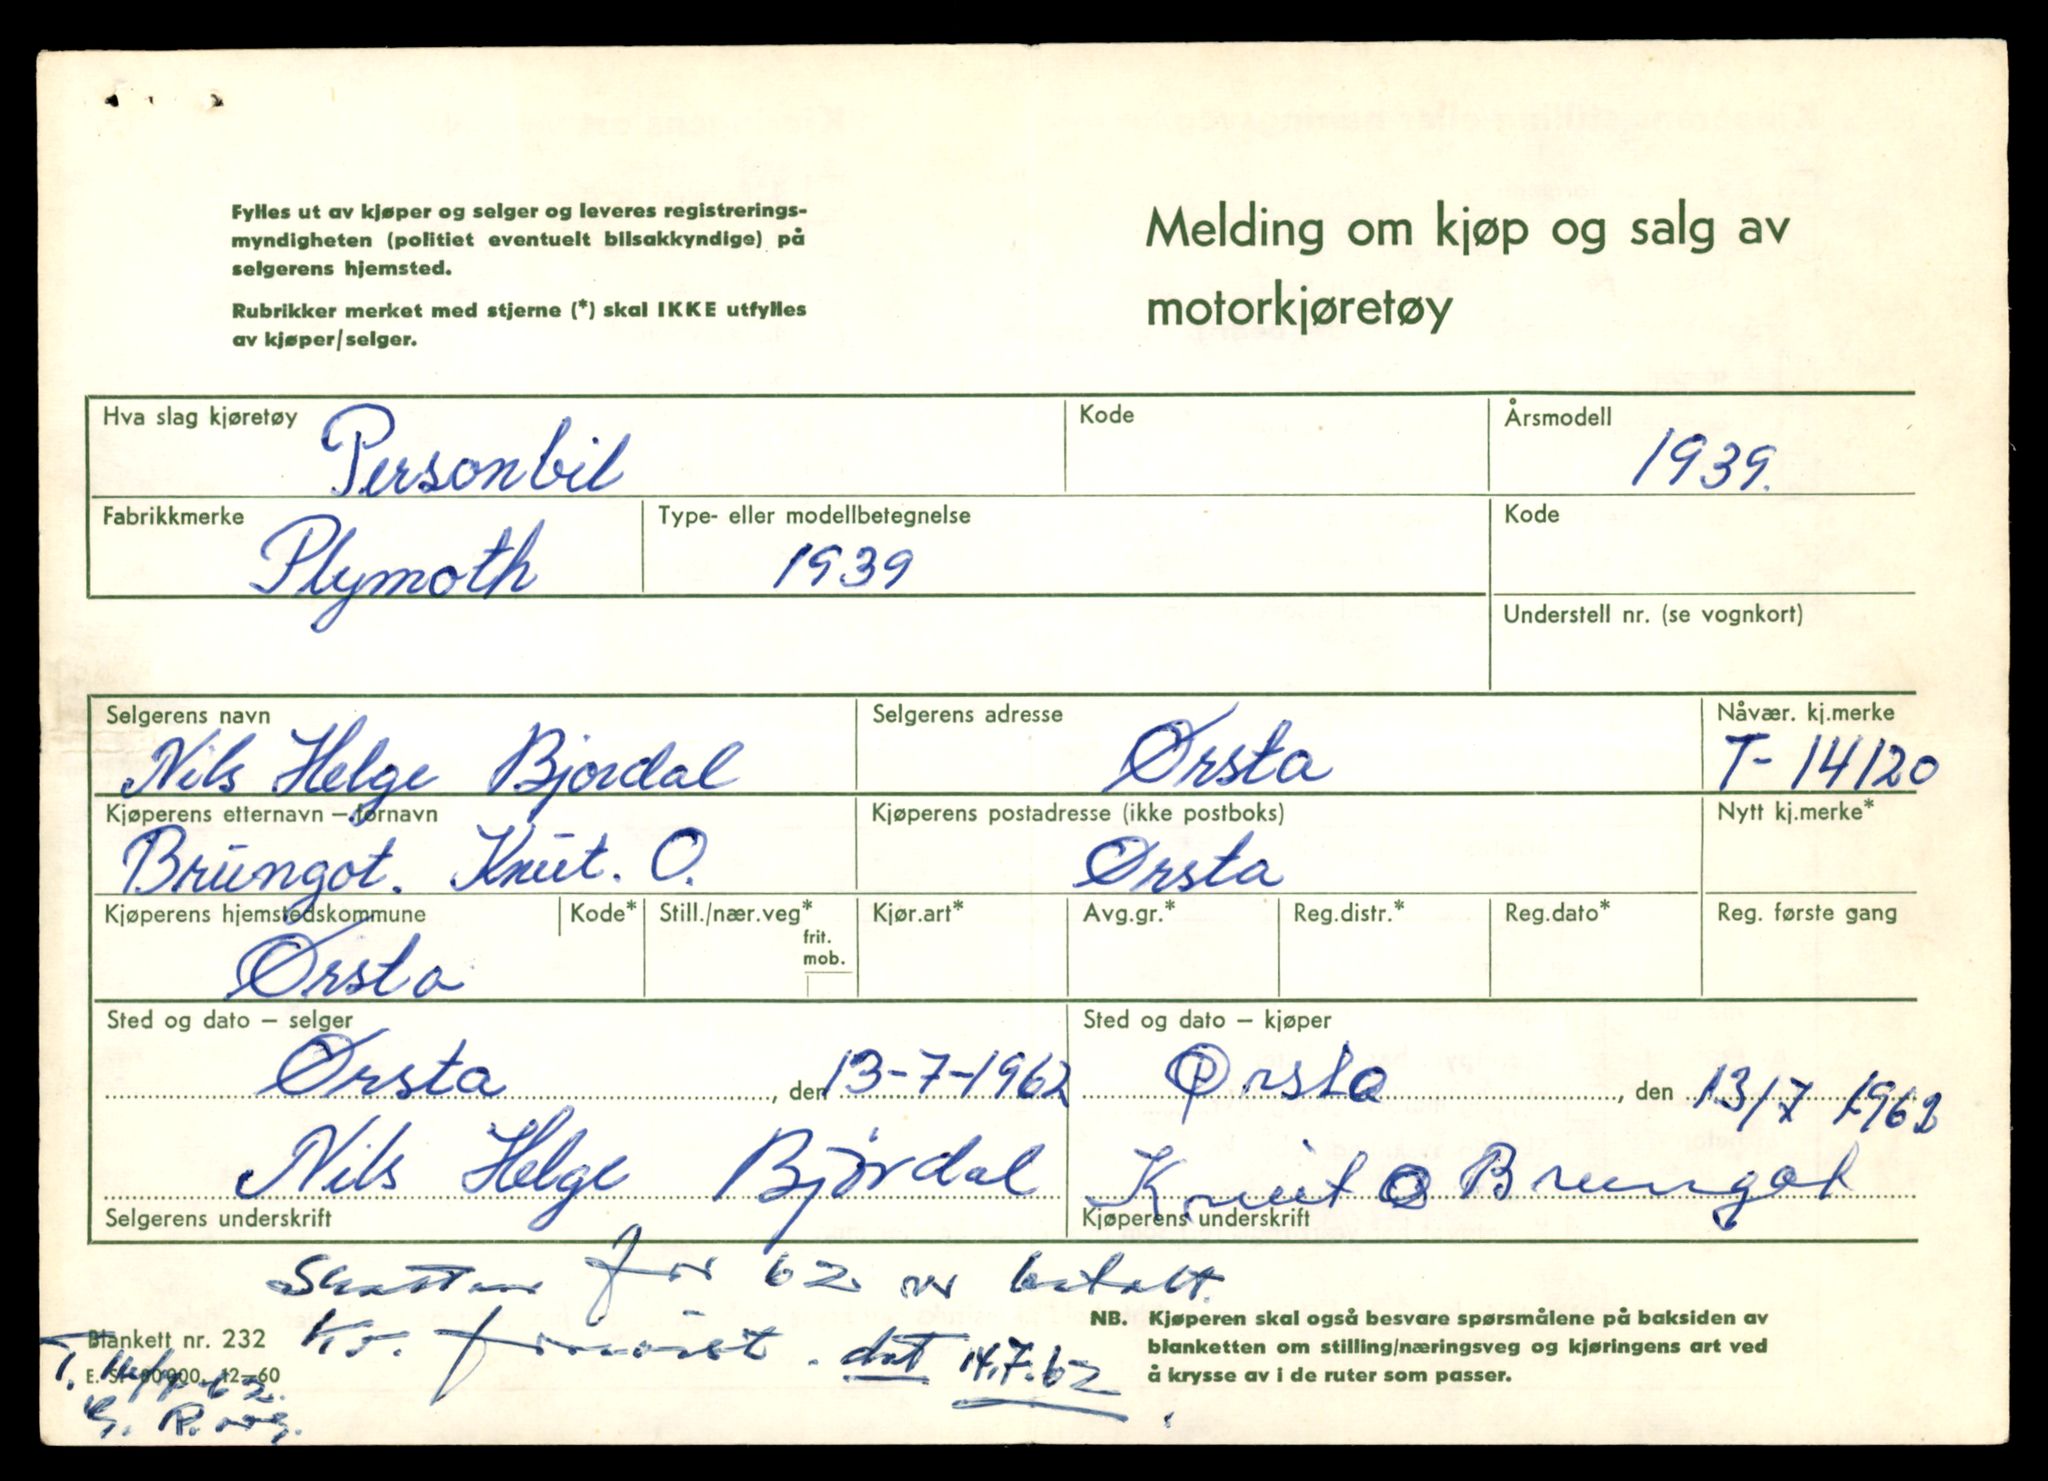 Fylles ut av kjøper og selger og leveres registrerings-
myndigheten (politiet eventuelt bilsakkyndige) på
selgerens hjemsted.
Rubrikker merket med stjerne (*) skal IKKE utfylles
av kjøper/selger.
Melding om kjøp og salg av
motorkjøretøy
Hva slag kjøretøy
Personbil
Kode
Årsmodell
1939.
Fabrikkmerke
Plymoth
Type- eller modellbetegnelse
1939
Kode
Understell nr. (se vognkort)
Selgerens navn
Nils Helge Bjørdal
Selgerens adresse
Ørsta
Nåvær. kj.merke
T-14120
Kjøperens etternavn – fornavn
Brungot. Knut. O.
Kjøperens postadresse (ikke postboks)
Ørsta
Nytt kj.merke*
Kjøperens hjemstedskommune
Ørsta
Kode*
Still./nær.veg*
frit.
mob.
Kjør.art*
Avg.gr.*
Reg.distr.*
Reg.dato*
Reg. første gang
Sted og dato – selger
Ørsta, den 13-7-1962
Sted og dato – kjøper
Ørsta, den 13/7 1962
Nils Helge Bjørdal
Selgerens underskrift
Knut O Brungot
Kjøperens underskrift
Skatten for 62 er betalt.
Kv. forevist. dat 14.7.62
Blankett nr. 232
E. S. 12–60
NB. Kjøperen skal også besvare spørsmålene på baksiden av
blanketten om stilling/næringsveg og kjøringens art ved
å krysse av i de ruter som passer.